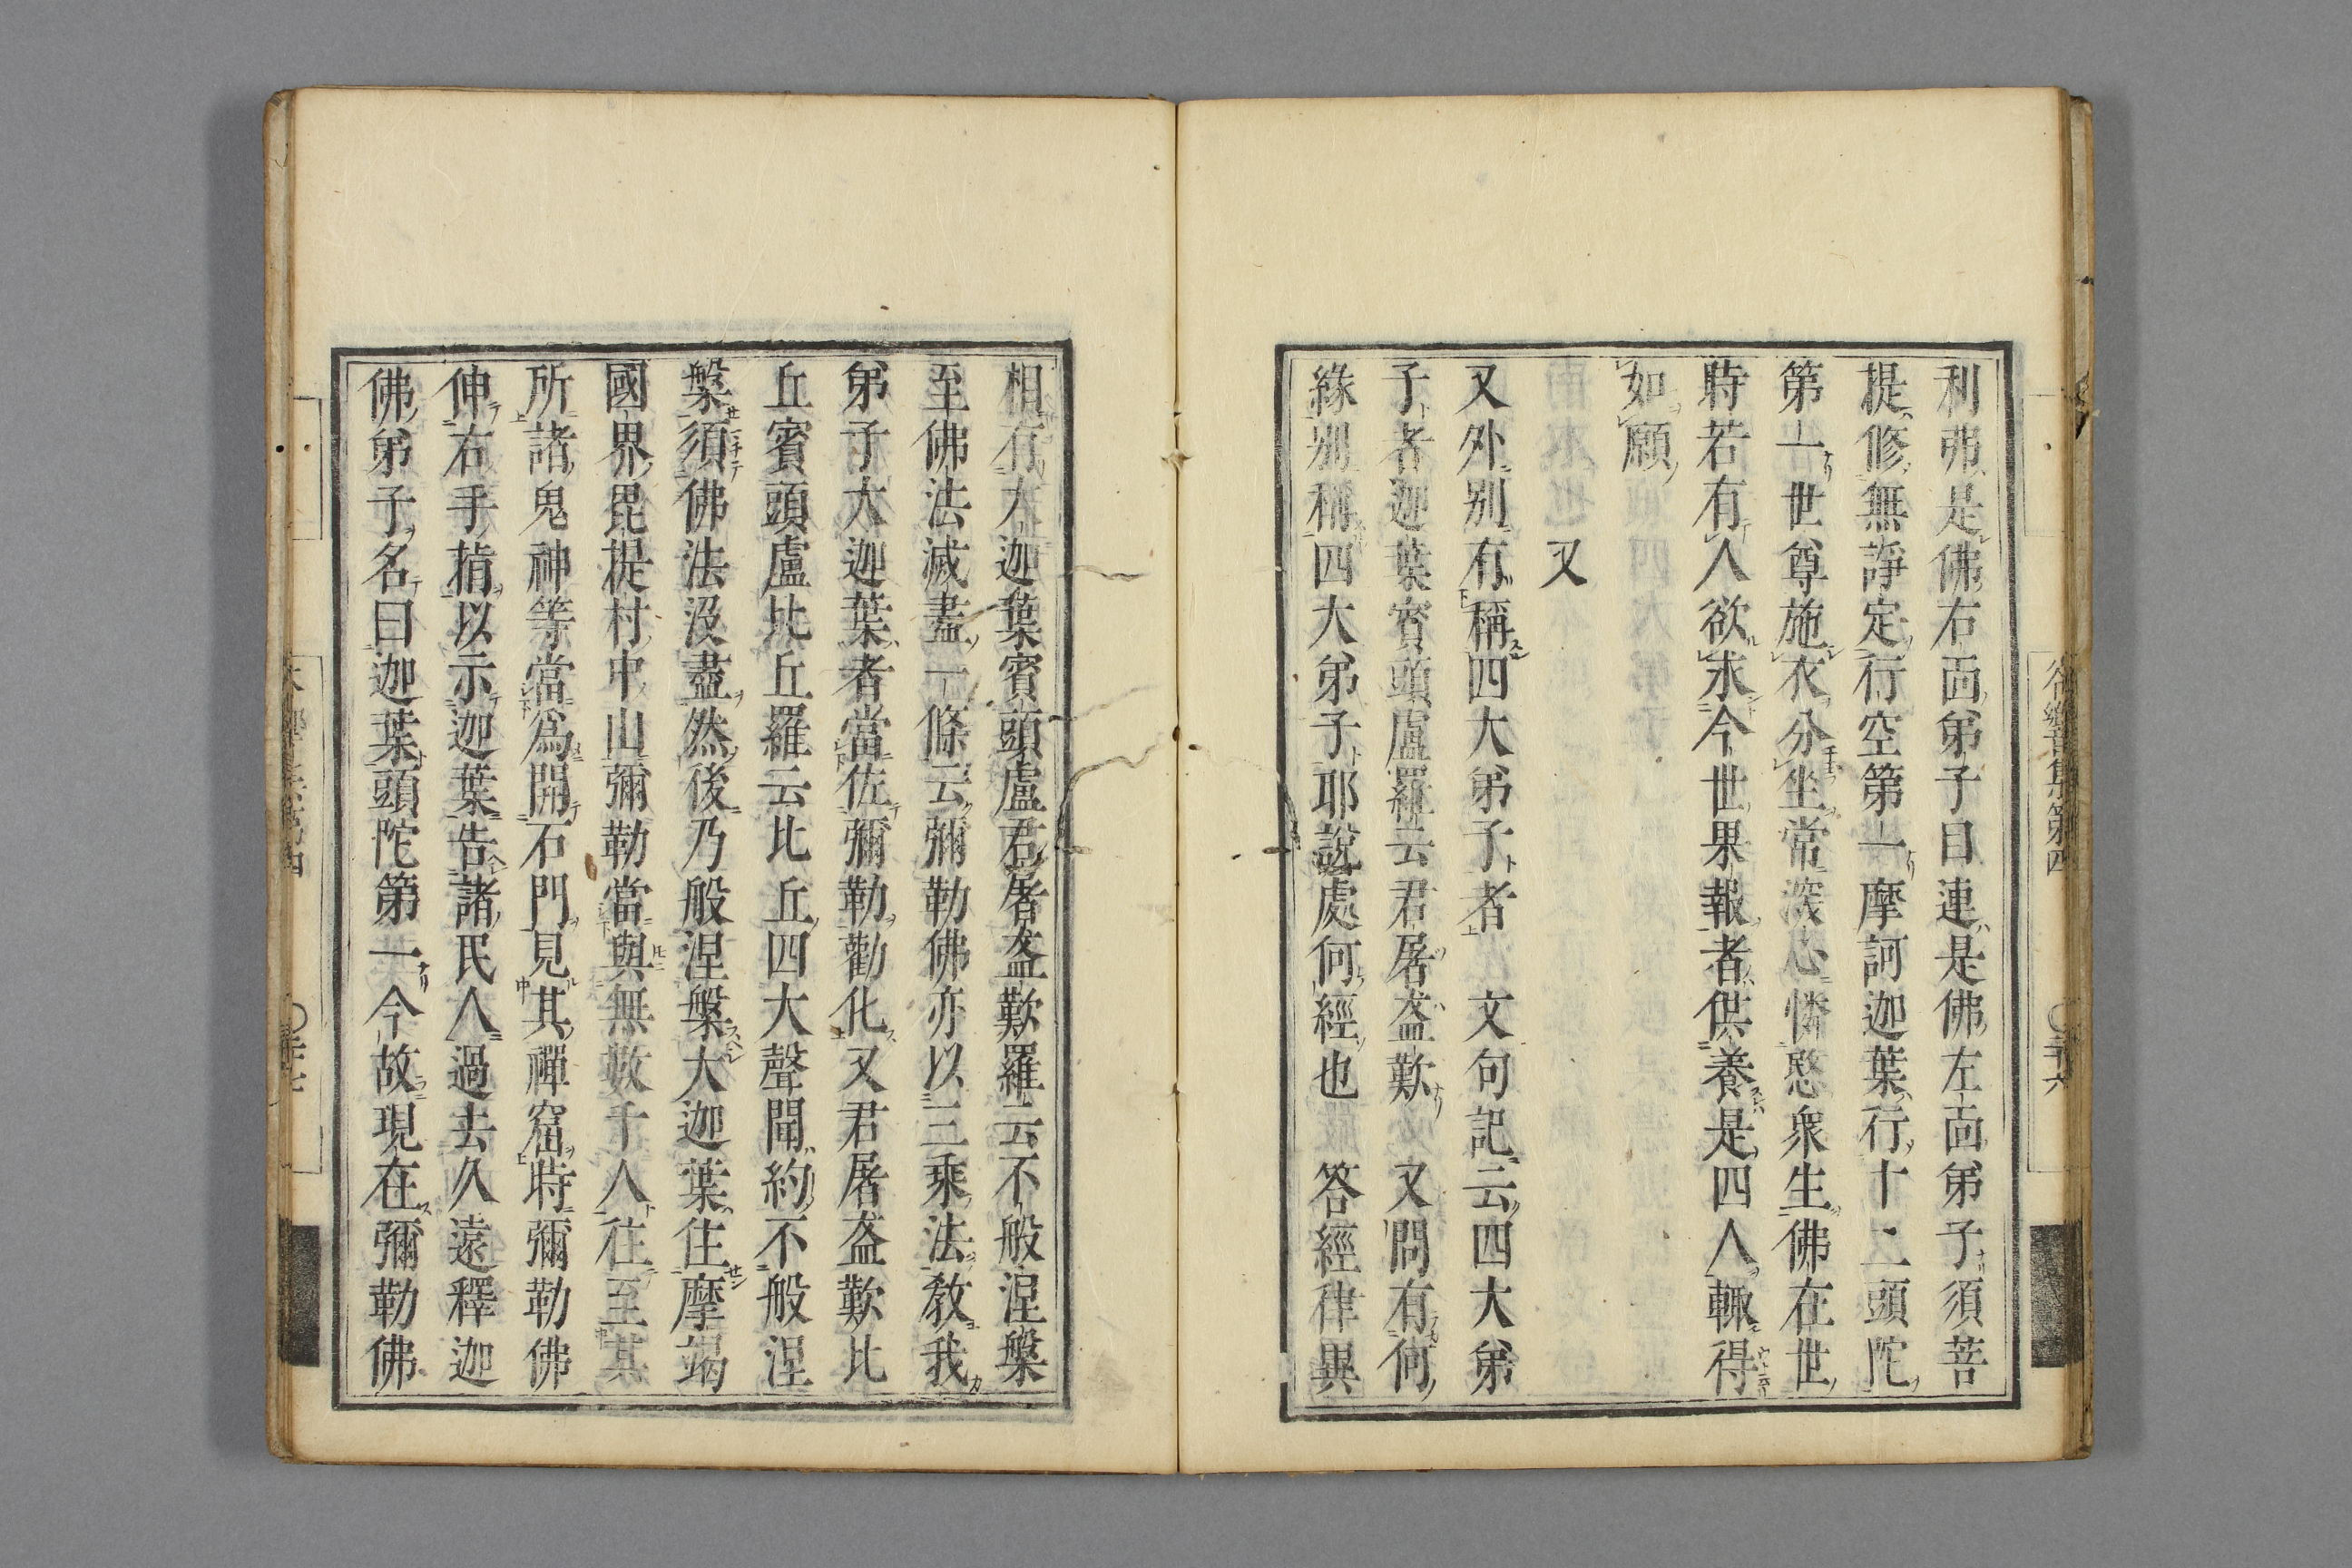 利弗是佛右面弟子目連是佛左面弟子須菩
提修無諍定行空第一摩訶迦葉行十二頭陀
第一世尊施衣分坐常深心憐愍衆生佛在世
時若有人欲求今世果報者供養是四人輙得
如願
又
又外別有稱四大弟子者 文句記云四大弟
子者迦葉賓頭盧羅云君屠盋歎 又問有何
緣別稱四大弟子耶說處何經也 答經律異
相有大迦葉賓頭盧君屠盋歎羅云不般涅槃
至佛法滅盡一條云彌勒佛亦以三乘法教我
弟子大迦葉者當佐彌勒勸化又君屠盋歎比
丘賓頭盧比丘羅云比丘四大聲聞約不般涅
槃須佛法沒盡然後乃般涅槃大迦葉住摩竭
國界毘提村中山彌勒當與無數千人往至其
所諸鬼神等當爲開石門見其禪窟時彌勒佛
伸右手指以示迦葉告諸民人過去久遠釋迦
佛弟子名曰迦葉頭陀第一今故現在彌勒佛